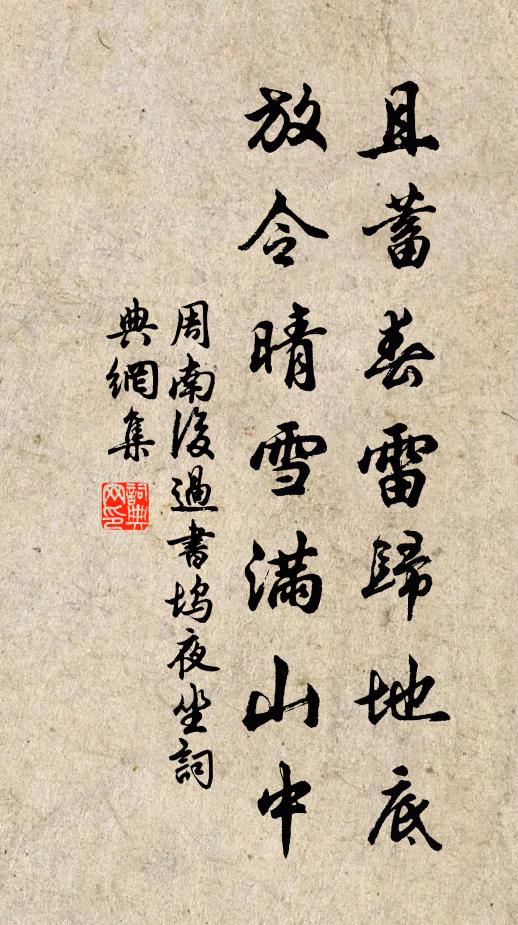 且蓄春雷歸地底
放令晴雪滿山中
周南復過書塢夜坐詞
典網集
詞典
网印